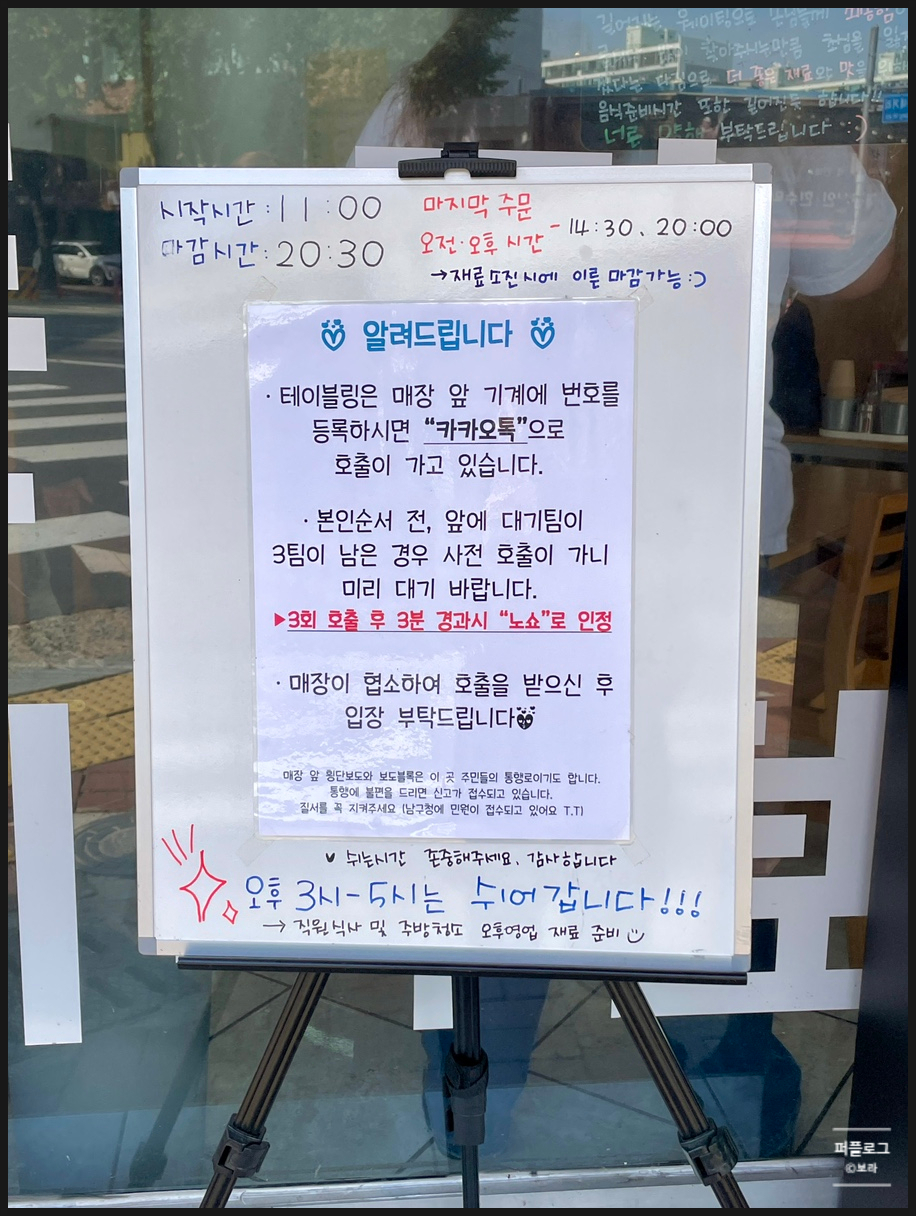 음식준비시간 또한 길어진듯 합니다!!
너른 양해 부탁드립니다 :)
시작시간 : 11:00
마감시간 : 20:30
마지막 주문
오전·오후 시간 - 14:30, 20:00
→재료소진시에 이른 마감가능:)
알려드립니다
· 테이블링은 매장 앞 기계에 번호를
등록하시면 “카카오톡”으로
호출이 가고 있습니다.
· 본인순서 전, 앞에 대기팀이
3팀이 남은 경우 사전 호출이 가니
미리 대기 바랍니다.
▶3회 호출 후 3분 경과시 “노쇼”로 인정
· 매장이 협소하여 호출을 받으신 후
입장 부탁드립니다
매장 앞 횡단보도와 보도블록은 이 곳 주민들의 통행로이기도 합니다.
통행에 불편을 드리면 신고가 접수되고 있습니다.
질서를 꼭 지켜주세요 (남구청에 민원이 접수되고 있어요 T.T)
쉬는시간 존중해주세요. 감사합니다
오후 3시-5시는 쉬어갑니다!!!
→ 직원식사 및 주방청소 오후영업 재료 준비
퍼플로그
©보라